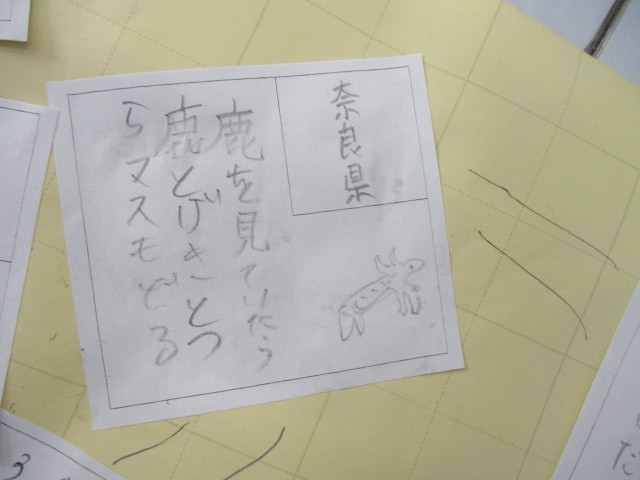 奈良県
鹿を見ていたら
鹿とげきとつ
5マスもどる
3
た